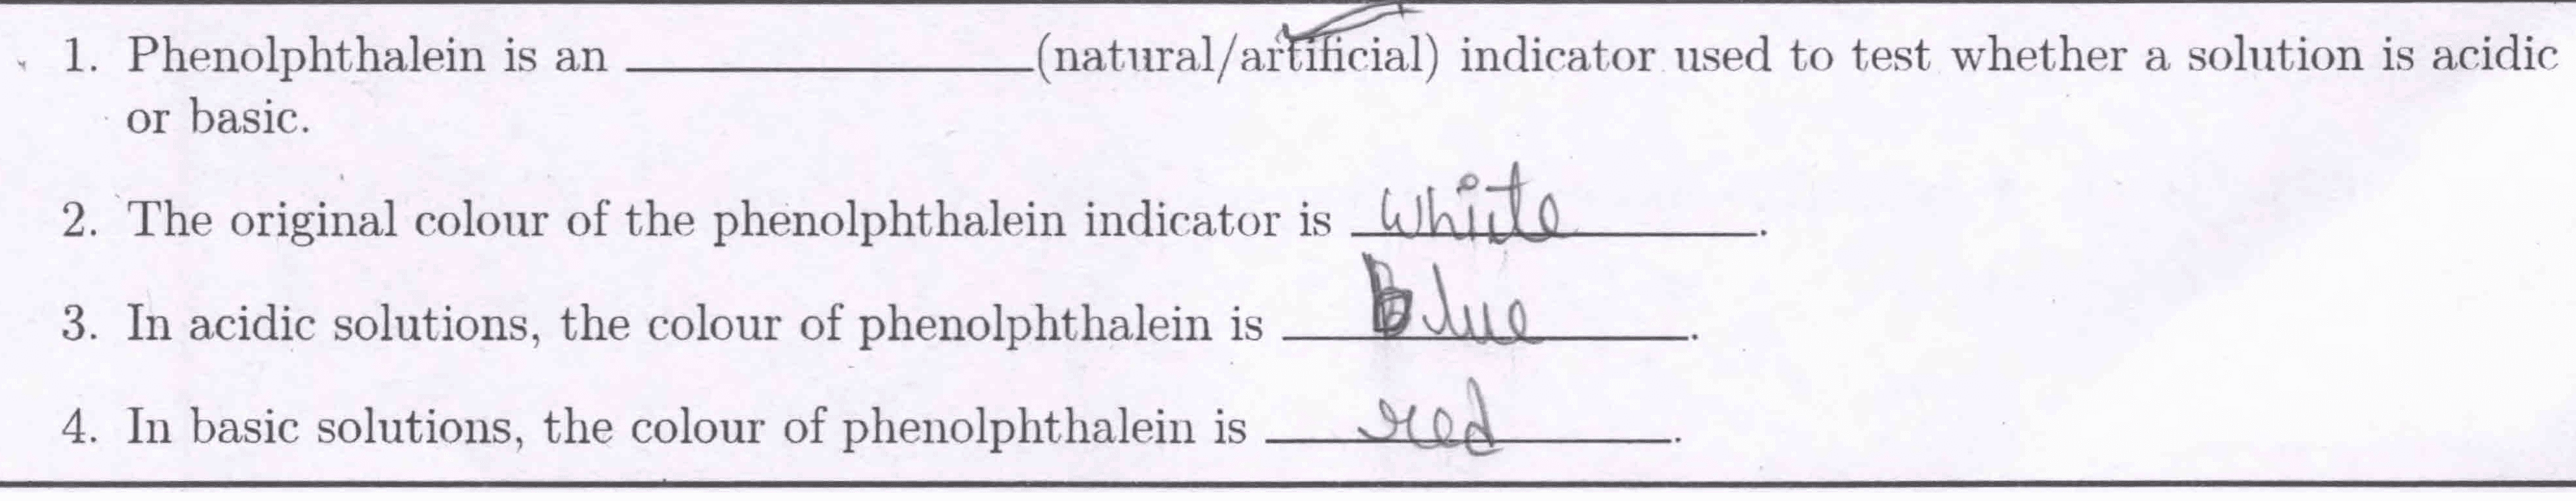 1. Phenolphthalein is an ____________(natural/artificial) indicator used to test whether a solution is acidic
or basic.
2. The original colour of the phenolphthalein indicator is white.
3. In acidic solutions, the colour of phenolphthalein is blue.
4. In basic solutions, the colour of phenolphthalein is red.